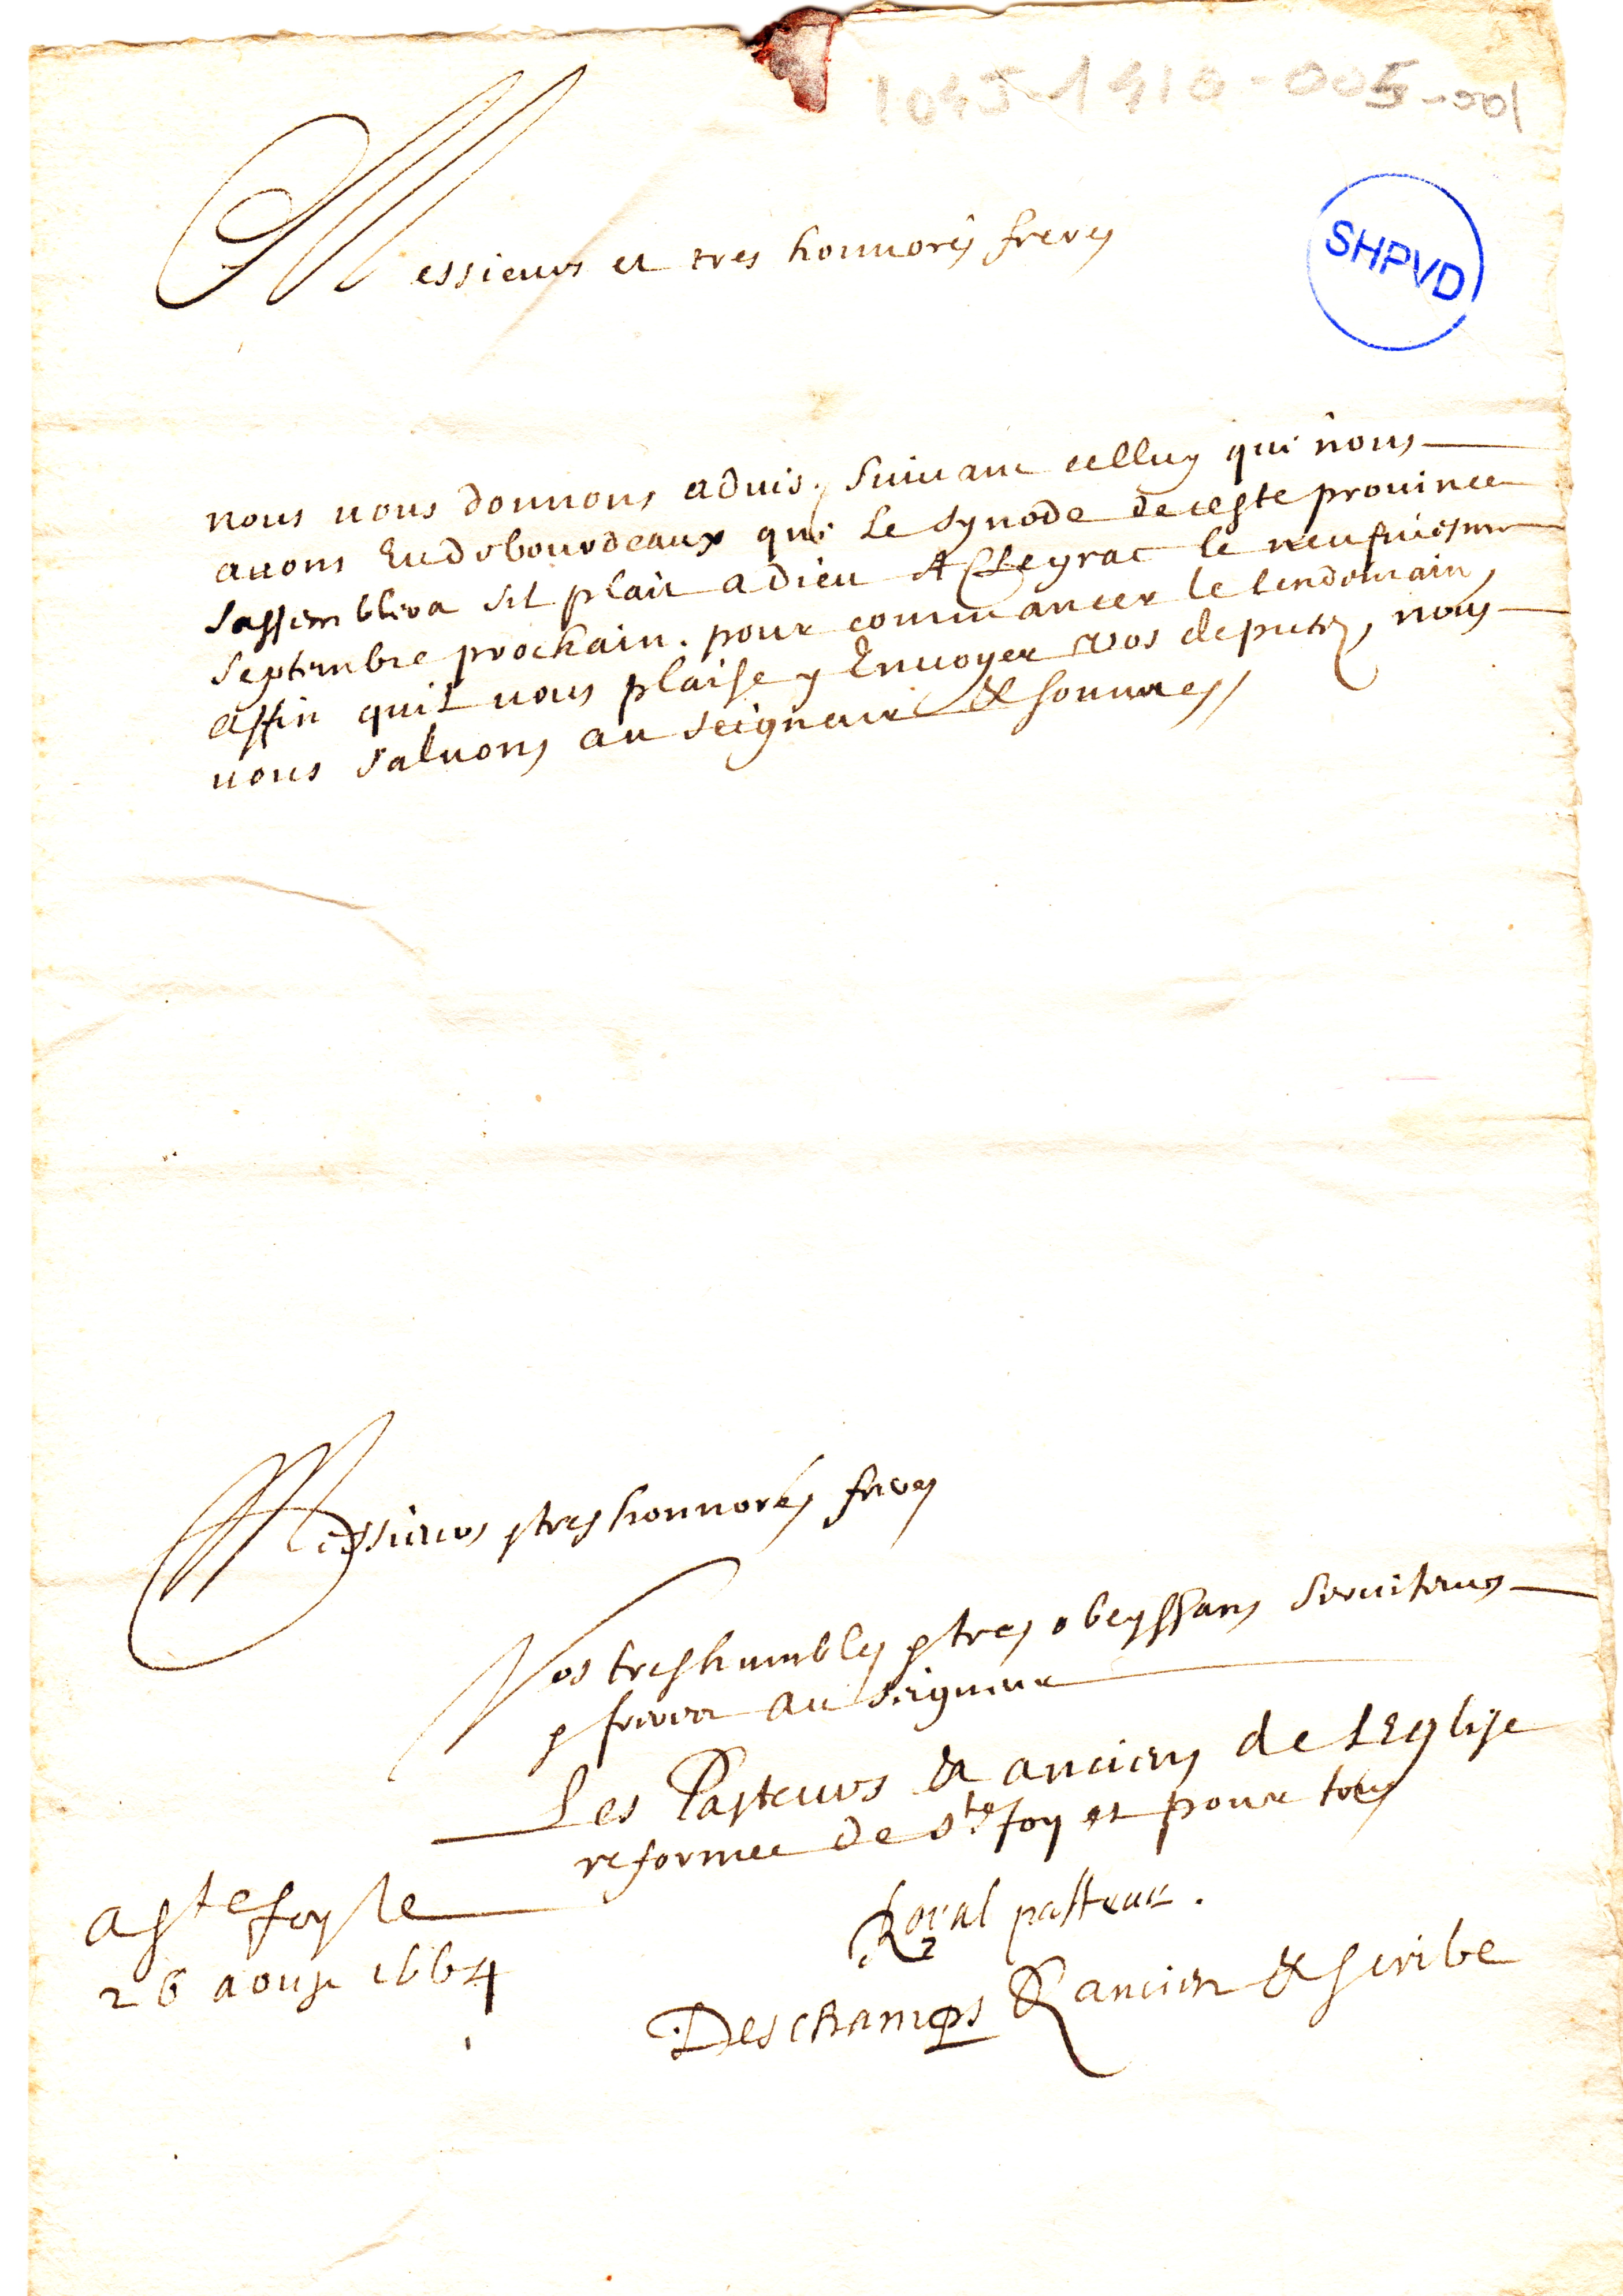 1045-1410-005-001
SHPVD
Messieurs et tres honnorés freres
nous uous donnons aduis, suiuant celluy que nous
auons Eu de bourdeaux que le synode de ceste prouince
sassemblera sil plait a dieu A Cleyrac le neufuiesme
septembre prochain. pour commancer le lendemain,
affin quil uous plaise y Enuoyer vos deputez, nous
uous saluons au seigneur & sommes
Messieurs & tres honnorés freres
Vos tres humbles & tres obeyssans seruiteurs
& freres au seigneur
Les Pasteurs & anciens de l'Eglise
reformee de Ste foy et pour tous
a ste foy le
26 aoust 1664
Royal pasteur.
Deschamps ancien & scribe